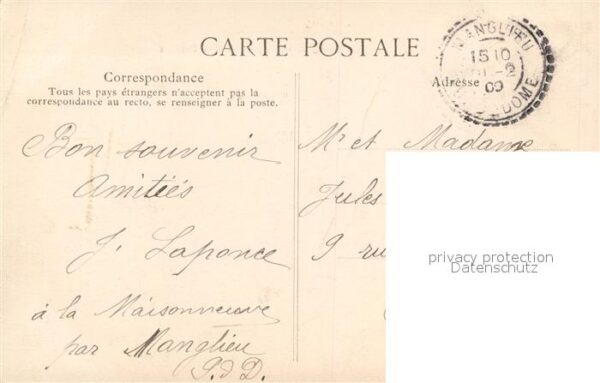 CARTE POSTALE
Correspondance
Tous les pays étrangers n'acceptent pas la
correspondance au recto, se renseigner à la poste.
Adresse
MANGLIEU
15 10
-2
09
DOME
Bon souvenir
Amitiés
J. Laponce
à la Maisonneuve
par Manglieu
P. d D.
Mr et Madame
Jules
9 ru
privacy protection
Datenschutz